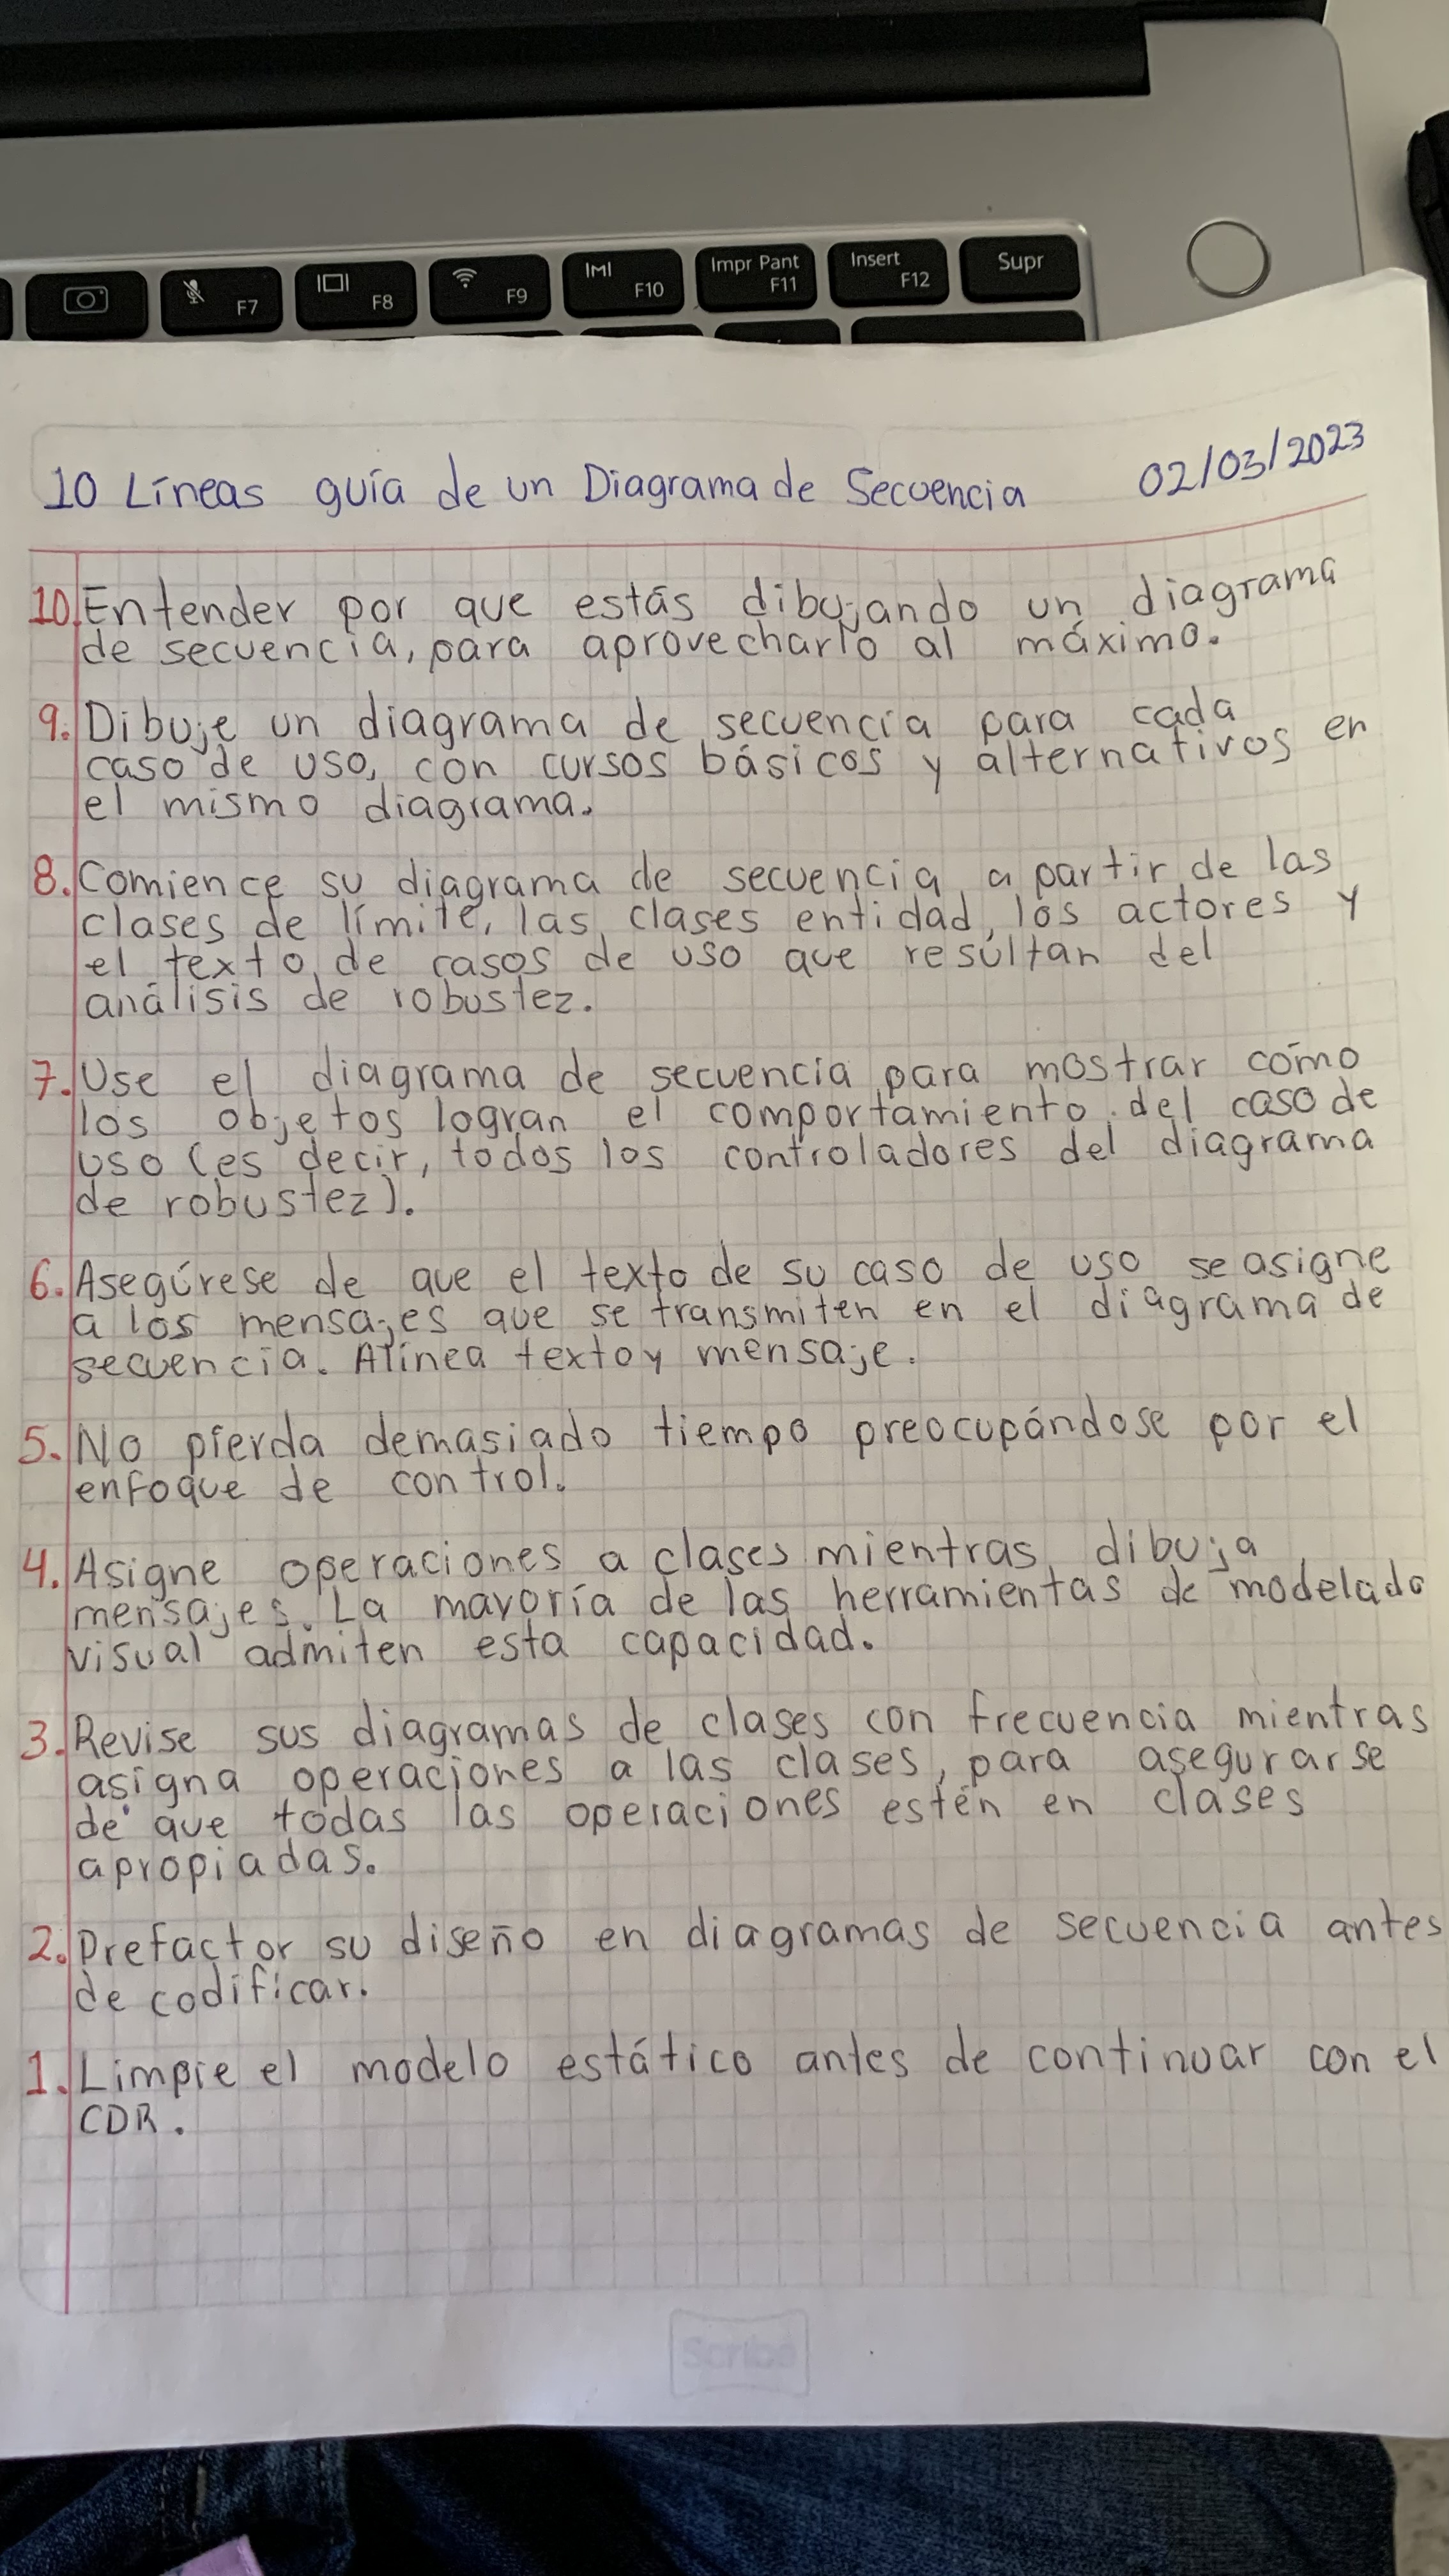 F7
F8
F9
F10
Impr Pant
F11
Insert
F12
Supr
10 Líneas guía de un Diagrama de Secuencia 02/03/2023
10. Entender por que estás dibujando un diagrama
de secuencia, para aprovecharlo al máximo.
9. Dibuje un diagrama de secuencia para cada
caso de uso, con cursos básicos y alternativos en
el mismo diagrama.
8. Comience su diagrama de secuencia a partir de las
clases de límite, las clases entidad, los actores y
el texto de casos de uso que resultan del
análisis de robustez.
7. Use el diagrama de secuencia para mostrar cómo
los objetos logran el comportamiento del caso de
uso (es decir, todos los controladores del diagrama
de robustez).
6. Asegúrese de que el texto de su caso de uso se asigne
a los mensajes que se transmiten en el diagrama de
secuencia. Alinea texto y mensaje.
5. No pierda demasiado tiempo preocupándose por el
enfoque de control.
4. Asigne operaciones a clases mientras dibuja
mensajes. La mayoría de las herramientas de modelado
visual admiten esta capacidad.
3. Revise sus diagramas de clases con frecuencia mientras
asigna operaciones a las clases, para asegurarse
de que todas las operaciones estén en clases
apropiadas.
2. Prefactor su diseño en diagramas de secuencia antes
de codificar.
1. Limpie el modelo estático antes de continuar con el
CDR.
Scribe